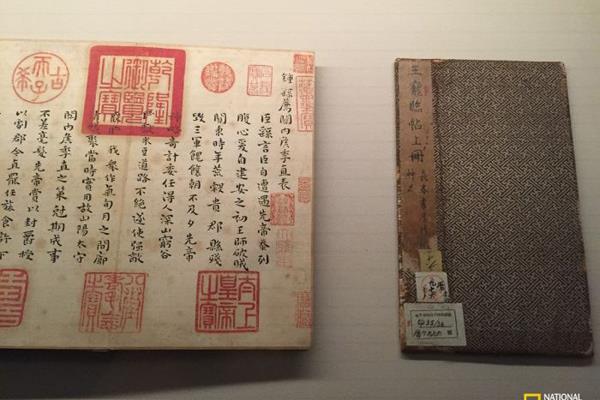 鍾繇薦關內侯季直表
臣繇言臣自遭遇先帝忝列
腹心爰自建安之初王師破賊
關東時年荒穀貴郡縣殘
毀三軍餽饟朝不及夕先帝
略奇計委任得人深山窮谷
米豆道路不絕遂使強敵
我眾作氣旬月之間廓
聚當時實用故山陽太守
關內侯季直之策剋期成事
不差毫髮先帝賞以封爵授
以劇郡今直罷任旅食許下
乾隆御覽之寶
古希天子
太上皇帝之寶
八徵耄念之寶
王寵臨帖上冊
NATIONAL